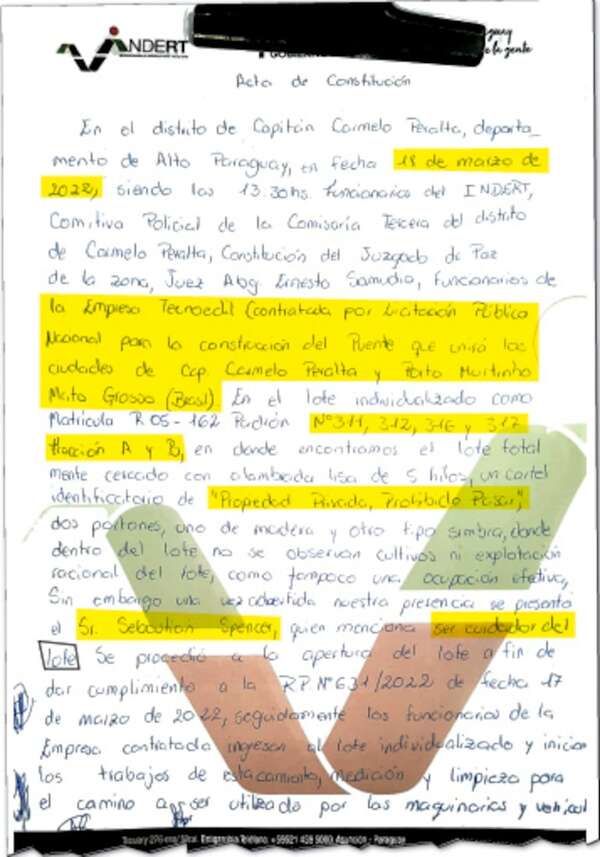 INDERT
GOBIERNO
de la gente
Acta de Constitución
En el distrito de Capitán Carmelo Peralta, departa_
mento de Alto Paraguay, en fecha 18 de marzo de
2022, siendo las 13.30hs. Funcionarios del INDERT,
Comitiva Policial de la Comisaría Tercera del distrito
de Carmelo Peralta, Constitución del Juzgado de Paz
de la zona, Juez Abg. Ernesto Samudio, Funcionarios de
la Empresa Tecnoedil (contratada por Licitación Pública
Nacional para la construcción del Puente que unirá las
ciudades de Cap. Carmelo Peralta y Porto Murtinho
Mato Grosso (Brasil). En el lote individualizado como
Matrícula R05-162 Padrón Nº311, 312, 316 y 317
fracción A y B, en donde encontramos el lote total
mente cercado con alambrada lisa de 5 hilos, un cartel
identificatorio de "Propiedad Privada, Prohibido Pasar",
dos portones, uno de madera y otro tipo simbra, donde
dentro del lote no se observan cultivos ni explotación
racional del lote, como tampoco una ocupación efectiva,
Sin embargo una vez advertida nuestra presencia se presentó
el Sr. Sebastian Spencer, quien menciona ser cuidador del
lote Se procedió a la apertura del lote a fin de
dar cumplimiento a la R.P. Nº631/2022 de fecha 17
de marzo de 2022, seguidamente los funcionarios de la
Empresa contratada ingresan al lote individualizado y inician
los trabajos de estacamiento, medición y limpieza para
el camino a ser utilizado por las maquinarias y vehicul
Tacuary 276 Teléfono: Asunción - Paraguay